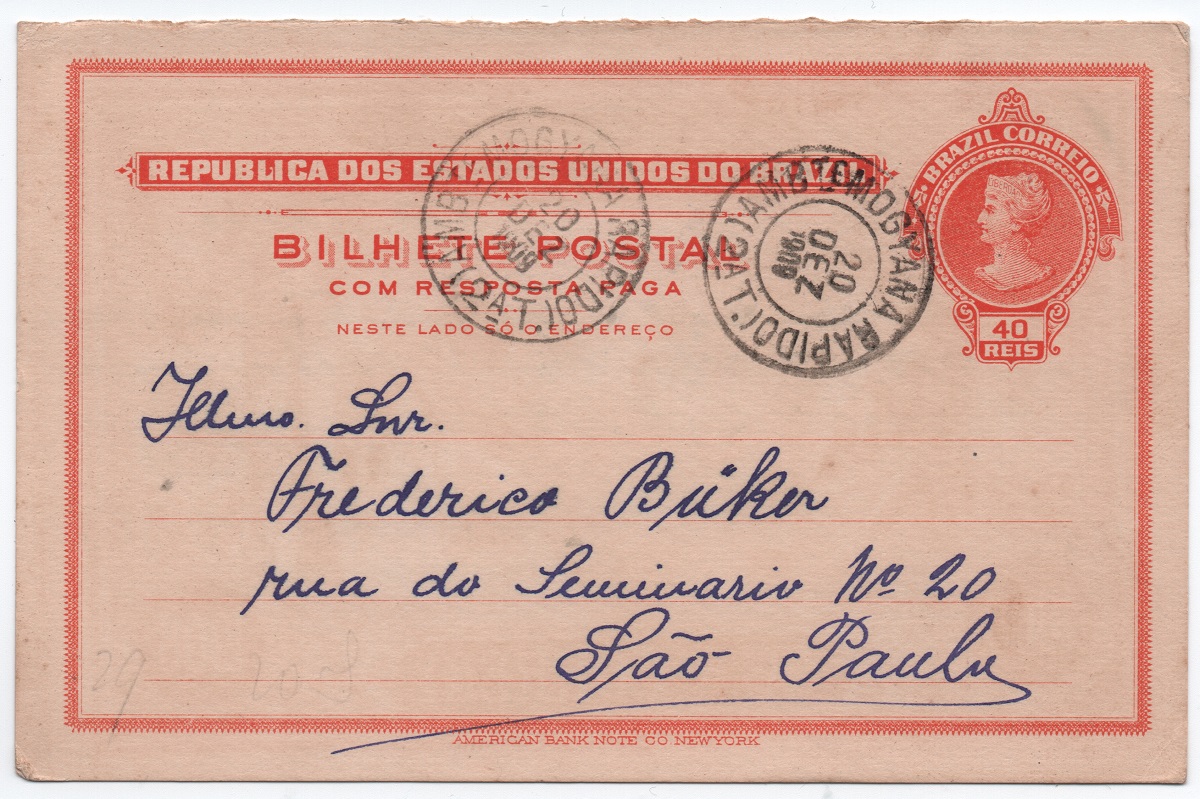 REPUBLICA DOS ESTADOS UNIDOS DO BRAZIL
BRAZIL CORREIO
LIBERTAS
BILHETE POSTAL
COM RESPOSTA PAGA
NESTE LADO SÓ O ENDEREÇO
40
REIS
AMB. MOGYANA RAPIDO (2ª T.)
20
DEZ
AMB. MOGYANA RAPIDO (2ª T.)
20
DEZ
Illmo. Snr.
Frederico Büker
rua do Seminario Nº 20
São Paulo
29
AMERICAN BANK NOTE CO. NEW YORK